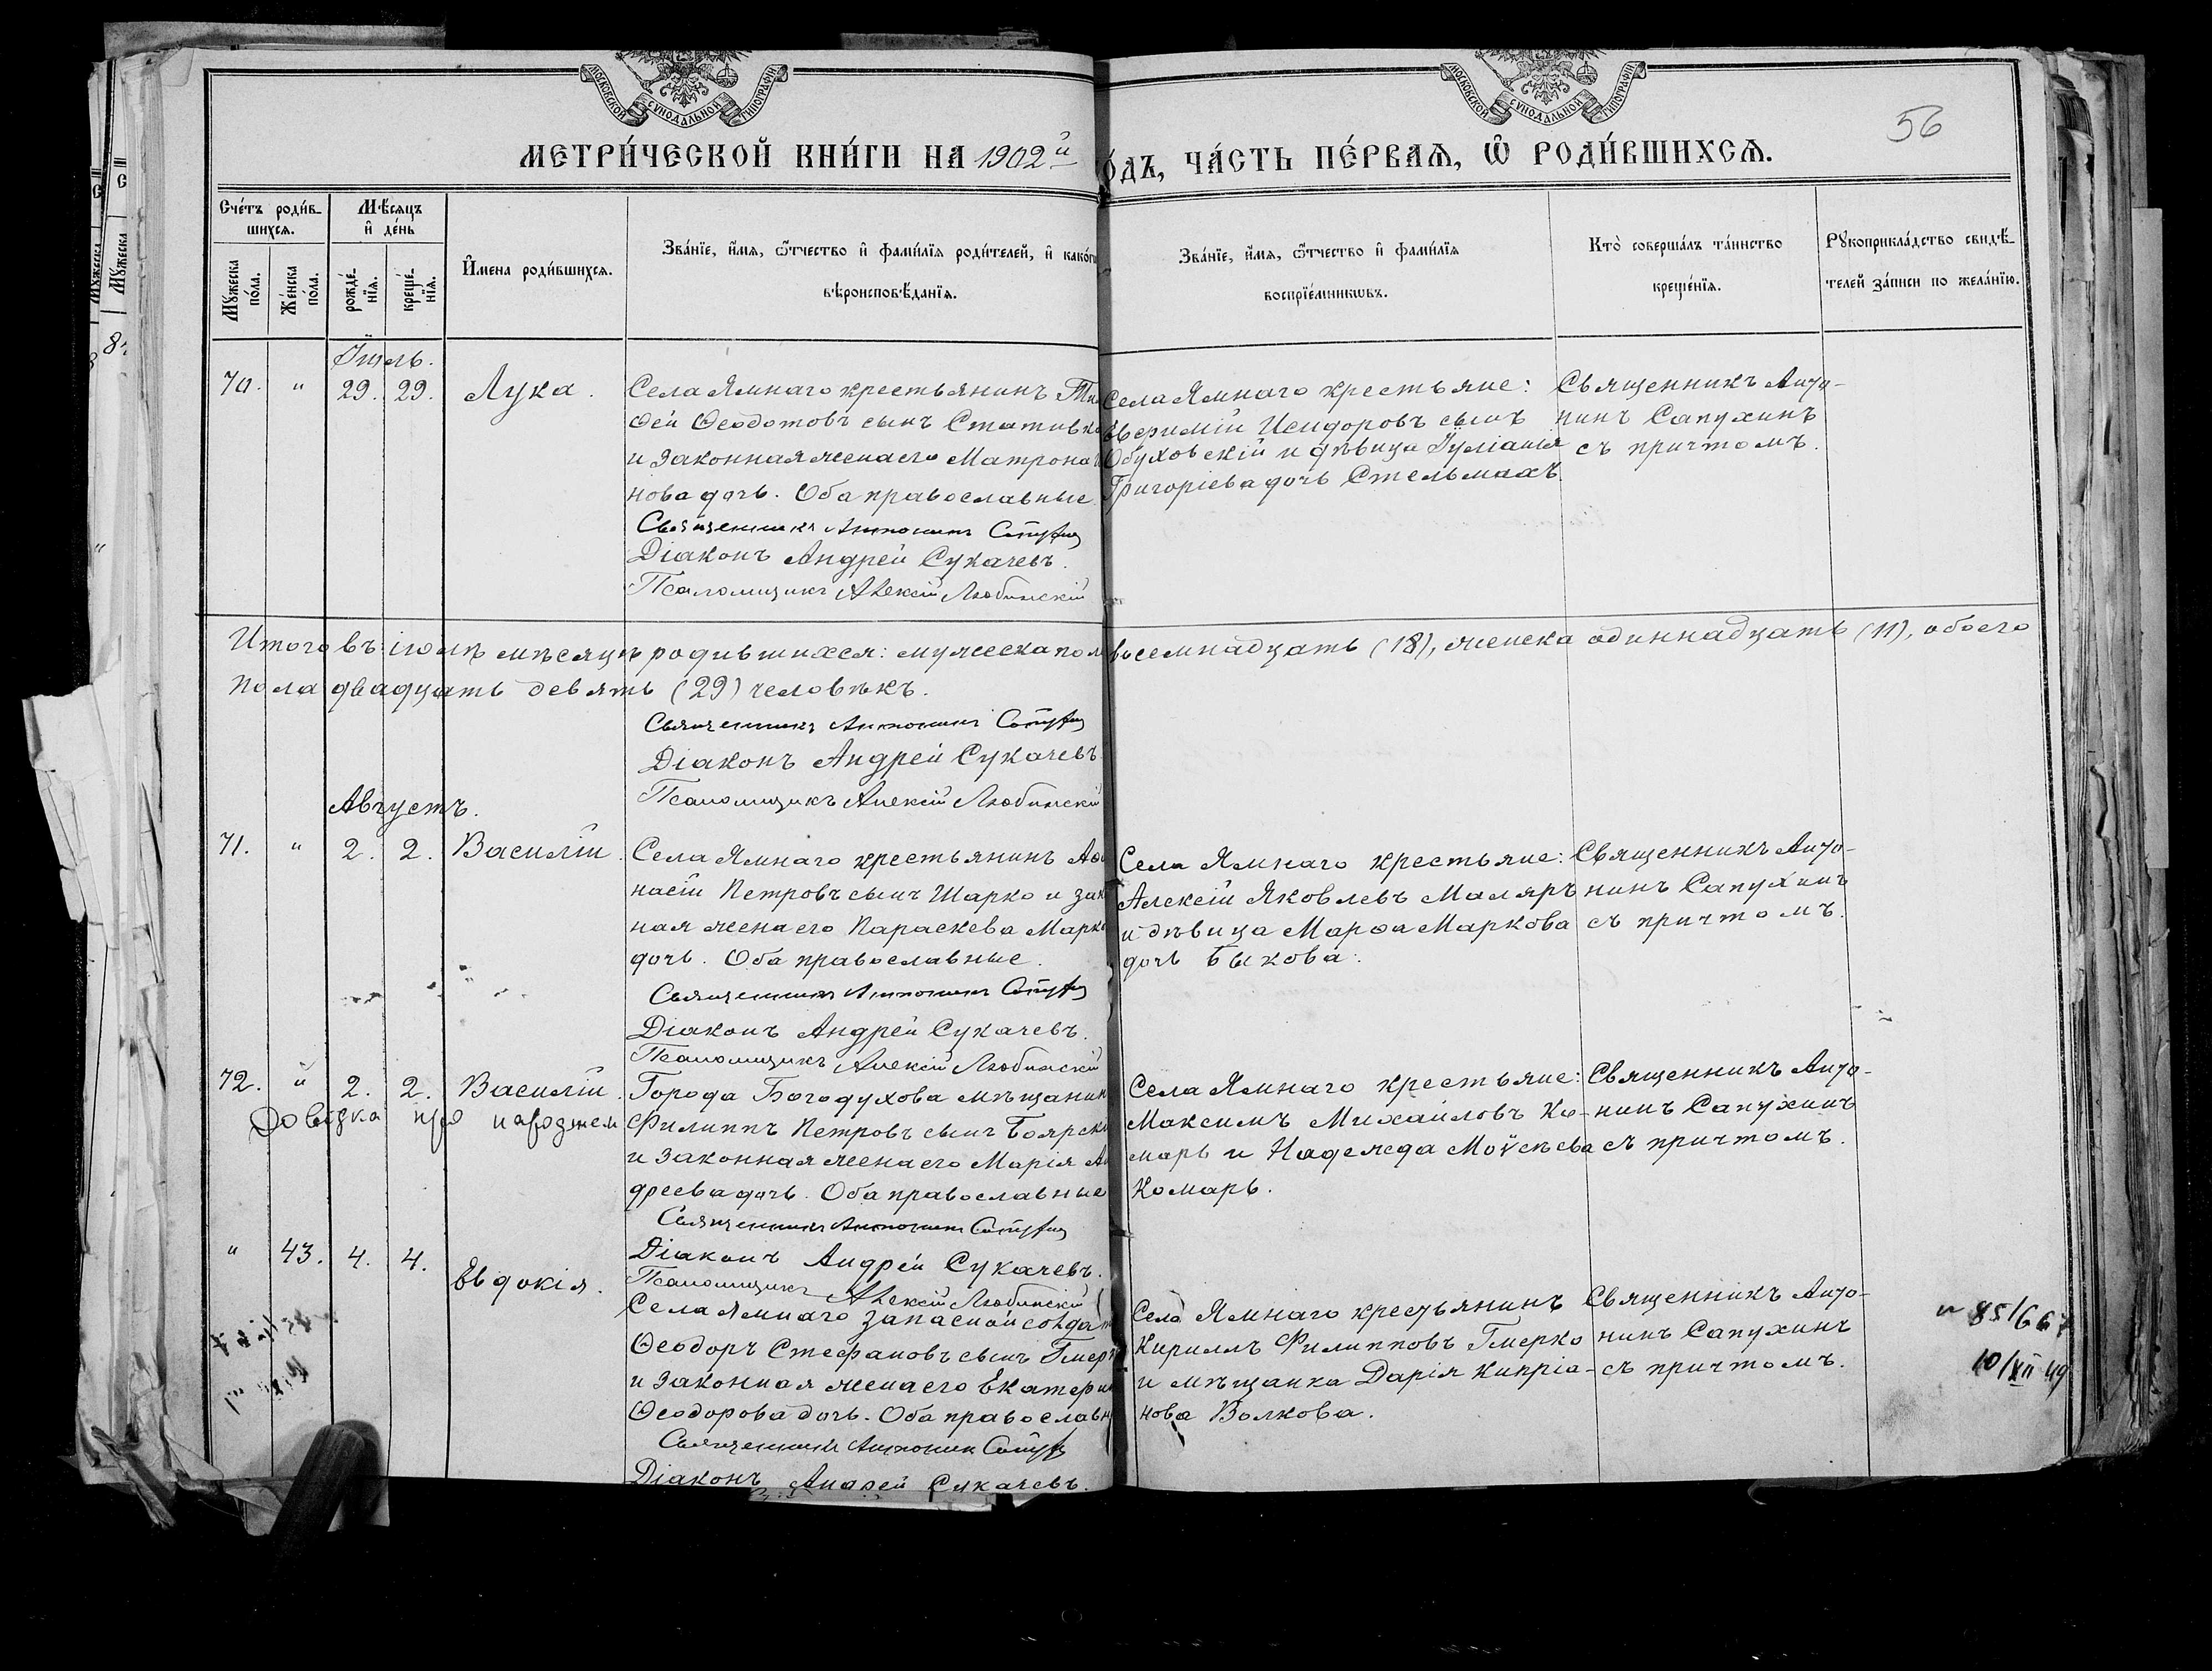 МОСКОВСКОЙ СѴНОДАЛЬНОЙ ТИПОГРАФІИ
МОСКОВСКОЙ СѴНОДАЛЬНОЙ ТИПОГРАФІИ
56
МЕТРИ́ЧЕСКОЙ КНИ́ГИ НА 1902й
О́ДЪ, ЧА́СТЬ ПЕ́РВАѦ, Ѽ РОДИ́ВШИХСѦ.
Сче́тъ роди́в-
шихсѧ.
Мꙋ́жеска
по́ла.
Же́нска
по́ла.
Мѣ́сѧцъ
и҆ де́нь
рожде́-
нїѧ.
креще́-
нїѧ.
И҆мена роди́вшихсѧ.
Зва́нїе, и҆́мѧ, ѻ҆́тчество и҆ фами́лїѧ роди́телей, и҆ како́гѡ
вѣроисповѣ́данїѧ.
Зва́нїе, и҆́мѧ, ѻ҆́тчество и҆ фами́лїѧ
воспрїе́мникѡвъ.
Кто̀ соверша́лъ та́инство
креще́нїѧ.
Рꙋкоприкла́дство свидѣ́-
телей за́писи по жела́нїю.
Іюль.
70. " 29. 29. Лука.
Села Ямнаго крестьянинъ Тим
ѳей Ѳеодотовъ сынъ Стативко
и законная жена его Матрона
нова дочь. Оба православные
Священникъ Антонинъ Сапухин
Діаконъ Андрей Сукачевъ.
Псаломщикъ Алексій Любинскій
Села Ямнаго крестьяне:
Евѳимій Исидоровъ сынъ
Обуховскій и дѣвица Іуліанія
Григоріева дочь Стельмахъ.
Священникъ Анто-
нинъ Сапухинъ
съ причтомъ.
Итого въ іюлѣ мѣсяцѣ родившихся: мужеска пола восемнадцать (18), женска одиннадцать (11), обоего
пола двадцать девять (29) человѣкъ.
Священникъ Антонинъ Сапухин
Діаконъ Андрей Сукачевъ
Псаломщикъ Алексій Любинскій
Августъ.
71. " 2. 2. Василій.
Села Ямнаго крестьянинъ Аѳа
насій Петровъ сынъ Шарко и зак
ная жена его Параскева Марко
дочь. Оба православные.
Священникъ Антонинъ Сапухин
Діаконъ Андрей Сукачевъ.
Псаломщикъ Алексій Любинскій
Села Ямнаго крестьяне:
Алексій Яковлевъ Маляръ
и дѣвица Марѳа Маркова
дочь Быкова.
Священникъ Анто-
нинъ Сапухинъ
съ причтомъ.
72. " 2. 2. Василій.
Довідка про народжен
Города Богодухова мѣщанин
Филиппъ Петровъ сынъ Боярск
и законная жена его Марія Ан
дреева дочь. Оба православные
Священникъ Антонинъ Сапухин
Діаконъ Андрей Сукачевъ.
Псаломщикъ Алексій Любинскій
Села Ямнаго крестьяне:
Максимъ Михайловъ Ко-
марь и Надежда Моѵсѣева
Комарь.
Священникъ Анто-
нинъ Сапухинъ
съ причтомъ.
" 43. 4. 4. Евдокія.
Села Ямнаго запасной солдат
Ѳеодоръ Стефановъ сынъ Гмерк
и законная жена его Екатерин
Ѳеодорова дочь. Оба православн
Священникъ Антонинъ Сапухин
Діаконъ Андрей Сукачевъ.
Села Ямнаго крестьянинъ
Кириллъ Филипповъ Гмерко
и мѣщанка Дарія Кипріа-
нова Волкова.
Священникъ Анто-
нинъ Сапухинъ
съ причтомъ.
10/XII 49